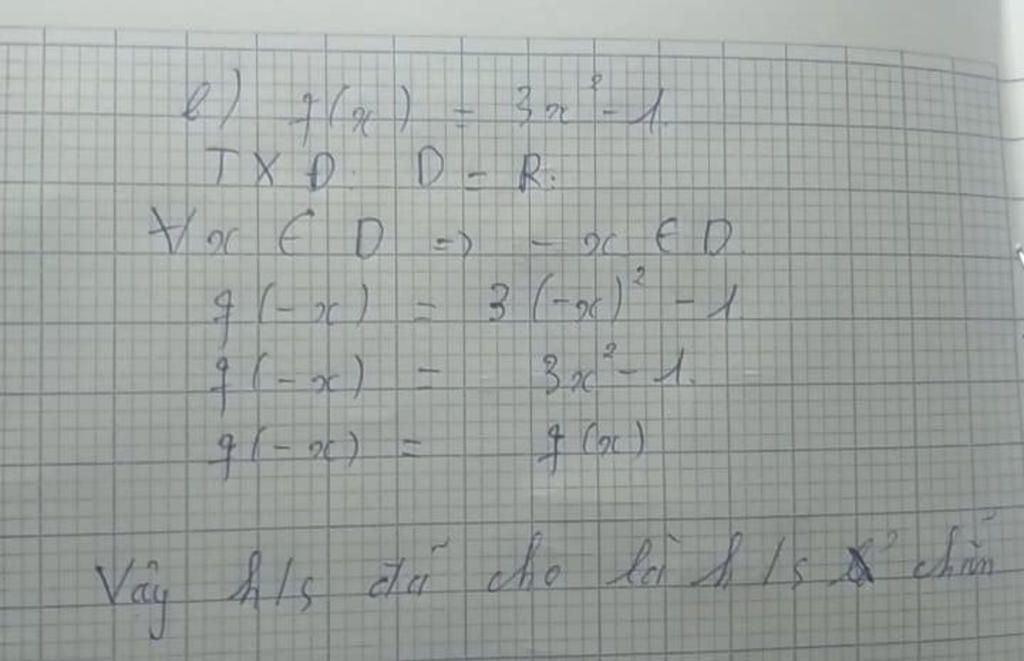 b) f(x) = 3x² - 1.
TXD: D = R.
∀x ∈ D => -x ∈ D.
f(-x) = 3(-x)² - 1
f(-x) = 3x² - 1.
f(-x) = f(x)
Vậy h/s đã cho là h/s chẵn